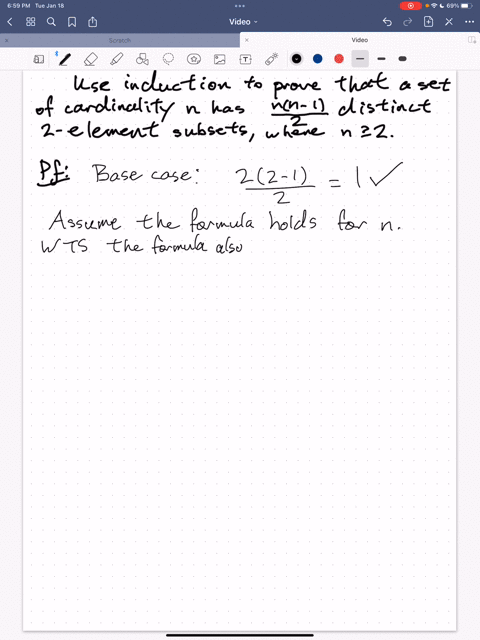 6:59 PM Tue Jan 18
69%
Video
Scratch
Video
Use induction to prove that a set
of cardinality n has n(n-1)/2 distinct
2-element subsets, where n ≥ 2.
Pf: Base case: 2(2-1)/2 = 1 ✓
Assume the formula holds for n.
WTS the formula also